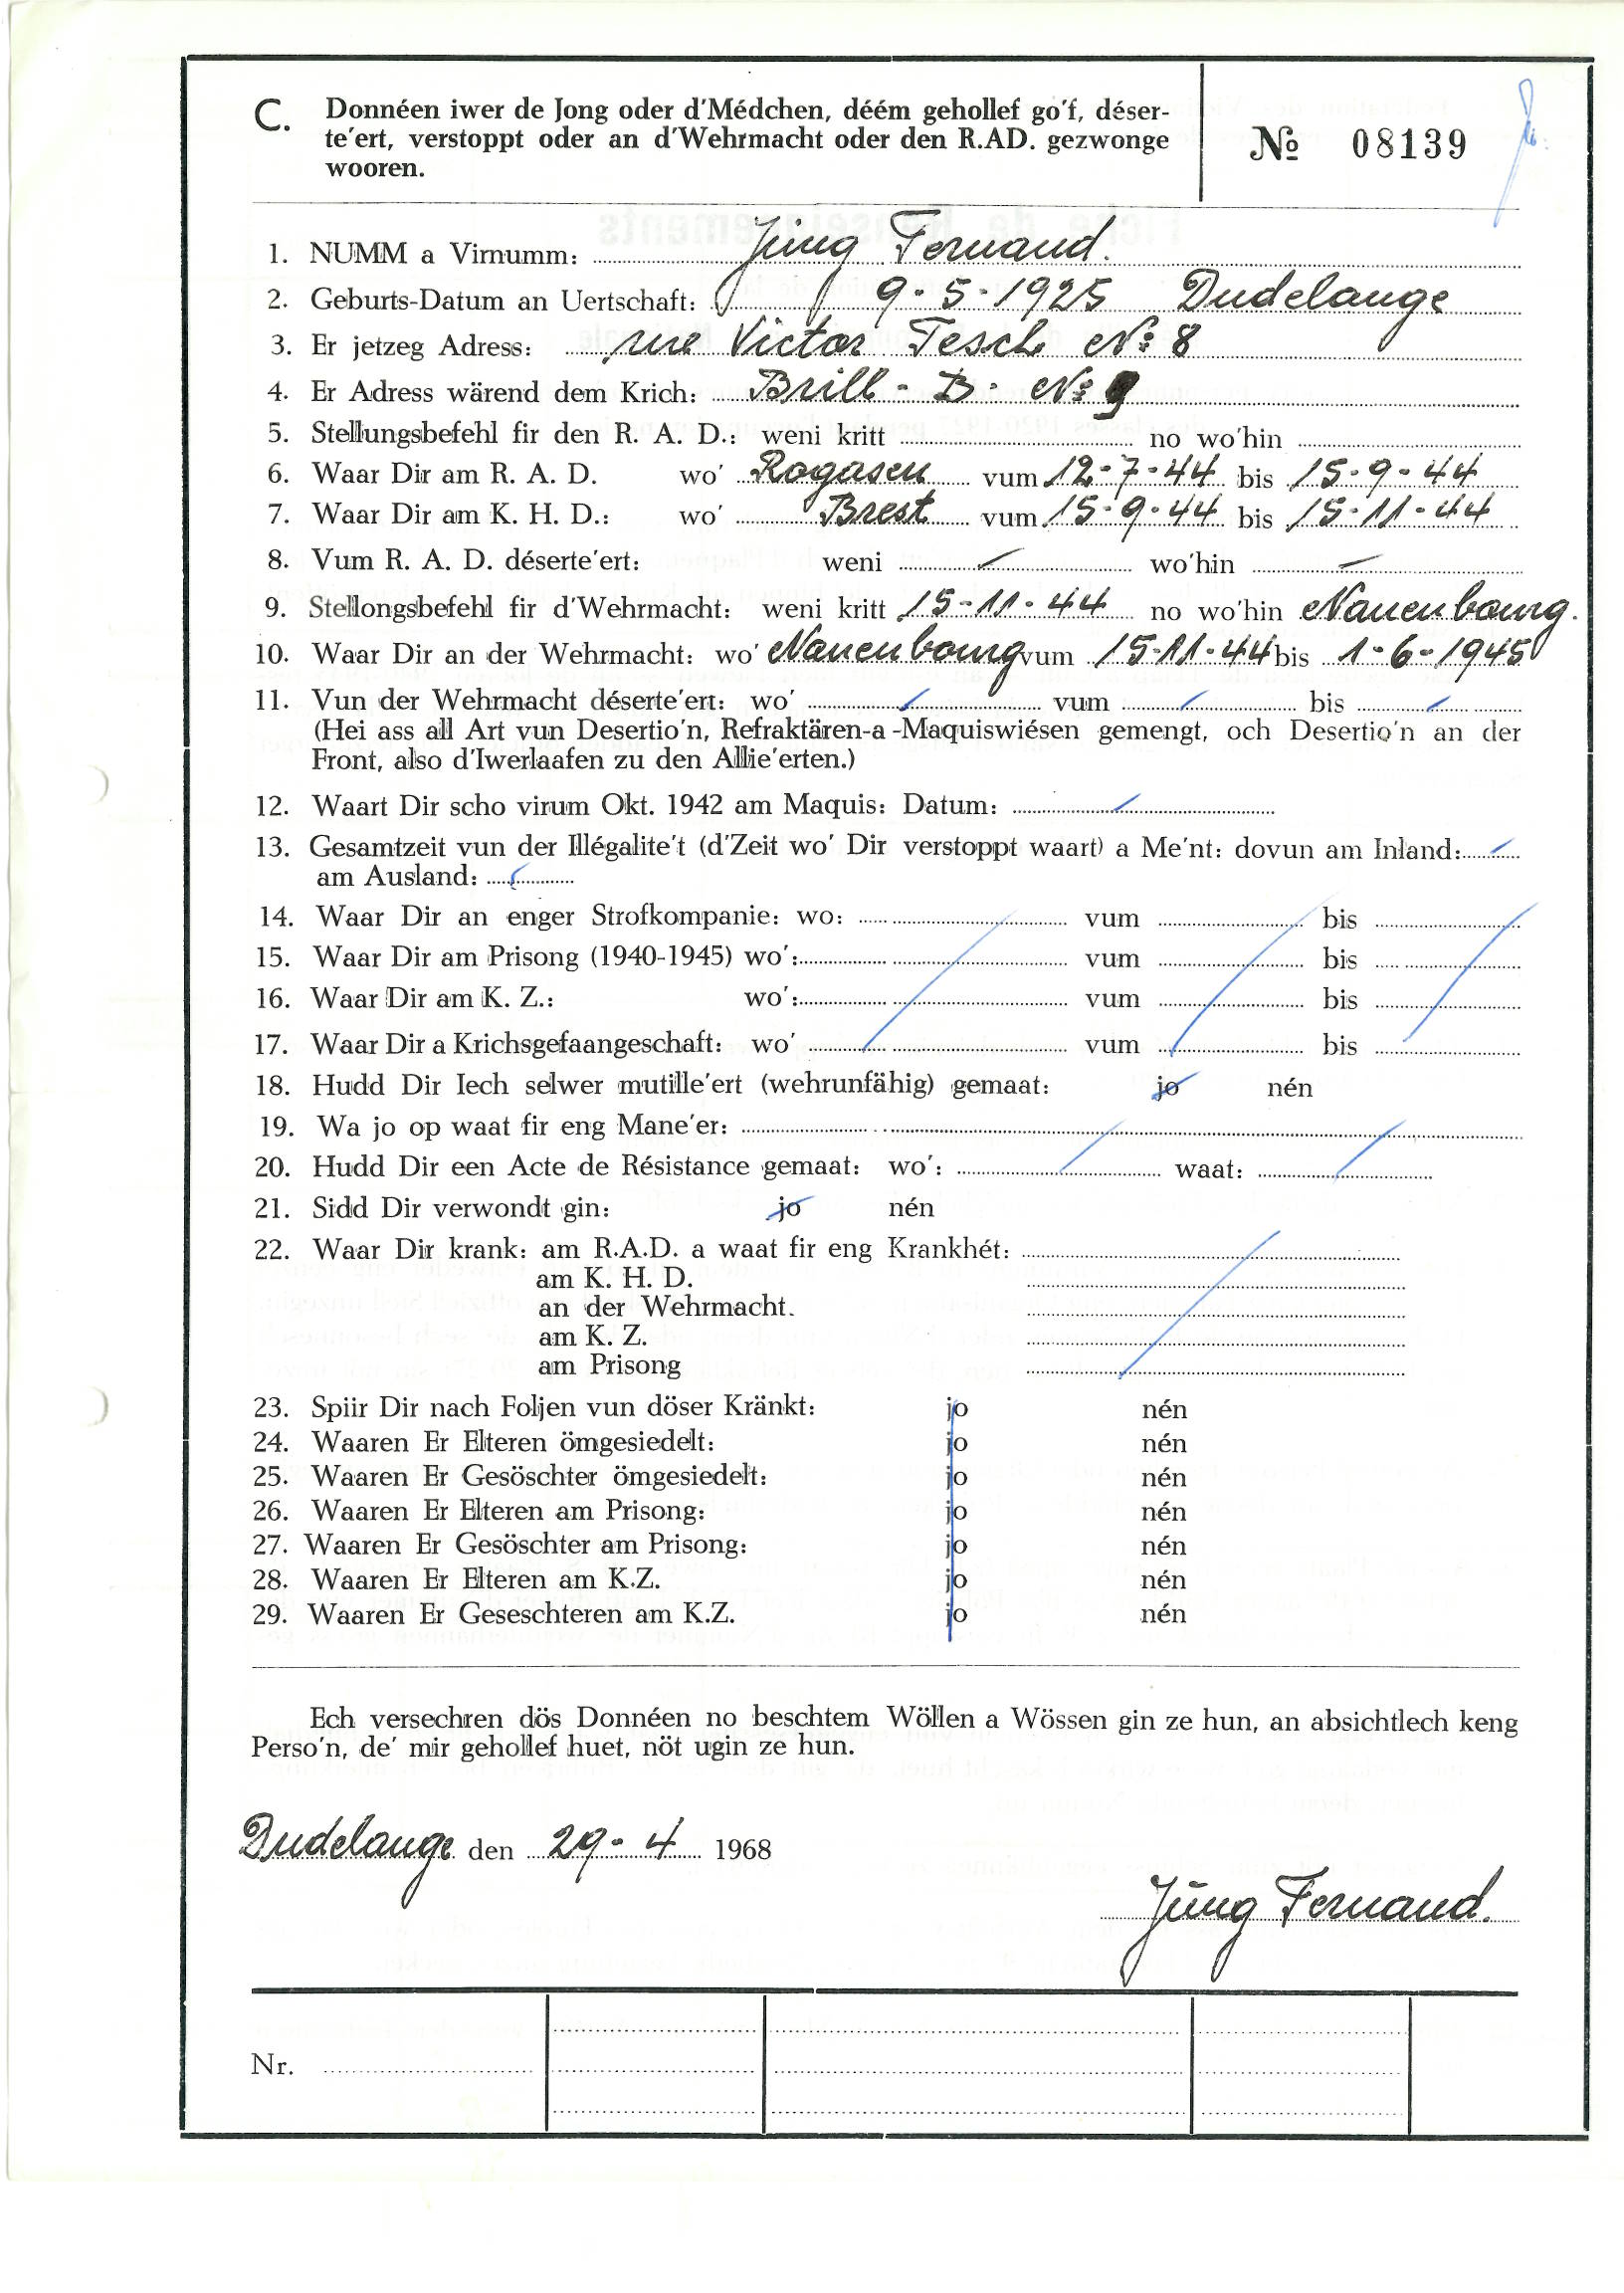 C. Donnéen iwer de Jong oder d'Médchen, déém gehollef go'f, déser-
te'ert, verstoppt oder an d'Wehrmacht oder den R.AD. gezwonge
wooren.
№ 08139
1. NUMM a Virnumm: Jüng Fernand.
2. Geburts-Datum an Uertschaft: 9-5-1925 Dudelange
3. Er jetzeg Adress: rue Victor Tesch No 8
4. Er Adress wärend dem Krich: Brill-B- No 9
5. Stellungsbefehl fir den R. A. D.: weni kritt no wo'hin
6. Waar Dir am R. A. D. wo' Rogasen vum 12-7-44 bis 15-9-44
7. Waar Dir am K. H. D.: wo' Brest vum 15-9-44 bis 15-11-44
8. Vum R. A. D. déserte'ert: weni - wo'hin -
9. Stellongsbefehl fir d'Wehrmacht: weni kritt 15-11-44 no wo'hin Nauenbourg.
10. Waar Dir an der Wehrmacht: wo' Nauenbourg vum 15-11-44 bis 1-6-1945
11. Vun der Wehrmacht déserte'ert: wo' vum bis
(Hei ass all Art vun Desertio'n, Refraktären-a -Maquiswiésen gemengt, och Desertio'n an der
Front, also d'Iwerlaafen zu den Allie'erten.)
12. Waart Dir scho virum Okt. 1942 am Maquis: Datum:
13. Gesamtzeit vun der Illégalite't (d'Zeit wo' Dir verstoppt waart) a Me'nt: dovun am Inland:
am Ausland:
14. Waar Dir an enger Strofkompanie: wo: vum bis
15. Waar Dir am Prisong (1940-1945) wo': vum bis
16. Waar Dir am K. Z.: wo': vum bis
17. Waar Dir a Krichsgefaangeschaft: wo' vum bis
18. Hudd Dir Iech selwer mutille'ert (wehrunfähig) gemaat: jo nén
19. Wa jo op waat fir eng Mane'er:
20. Hudd Dir een Acte de Résistance gemaat: wo': waat:
21. Sidd Dir verwondt gin: jo nén
22. Waar Dir krank: am R.A.D. a waat fir eng Krankhét:
am K. H. D.
an der Wehrmacht.
am K. Z.
am Prisong
23. Spiir Dir nach Foljen vun döser Kränkt: jo nén
24. Waaren Er Elteren ömgesiedelt: jo nén
25. Waaren Er Gesöschter ömgesiedelt: jo nén
26. Waaren Er Elteren am Prisong: jo nén
27. Waaren Er Gesöschter am Prisong: jo nén
28. Waaren Er Elteren am K.Z. jo nén
29. Waaren Er Geseschteren am K.Z. jo nén
Ech versechren dös Donnéen no beschtem Wöllen a Wössen gin ze hun, an absichtlech keng
Perso'n, de' mir gehollef huet, nöt ugin ze hun.
Dudelange den 29-4 1968
Jüng Fernand.
Nr.